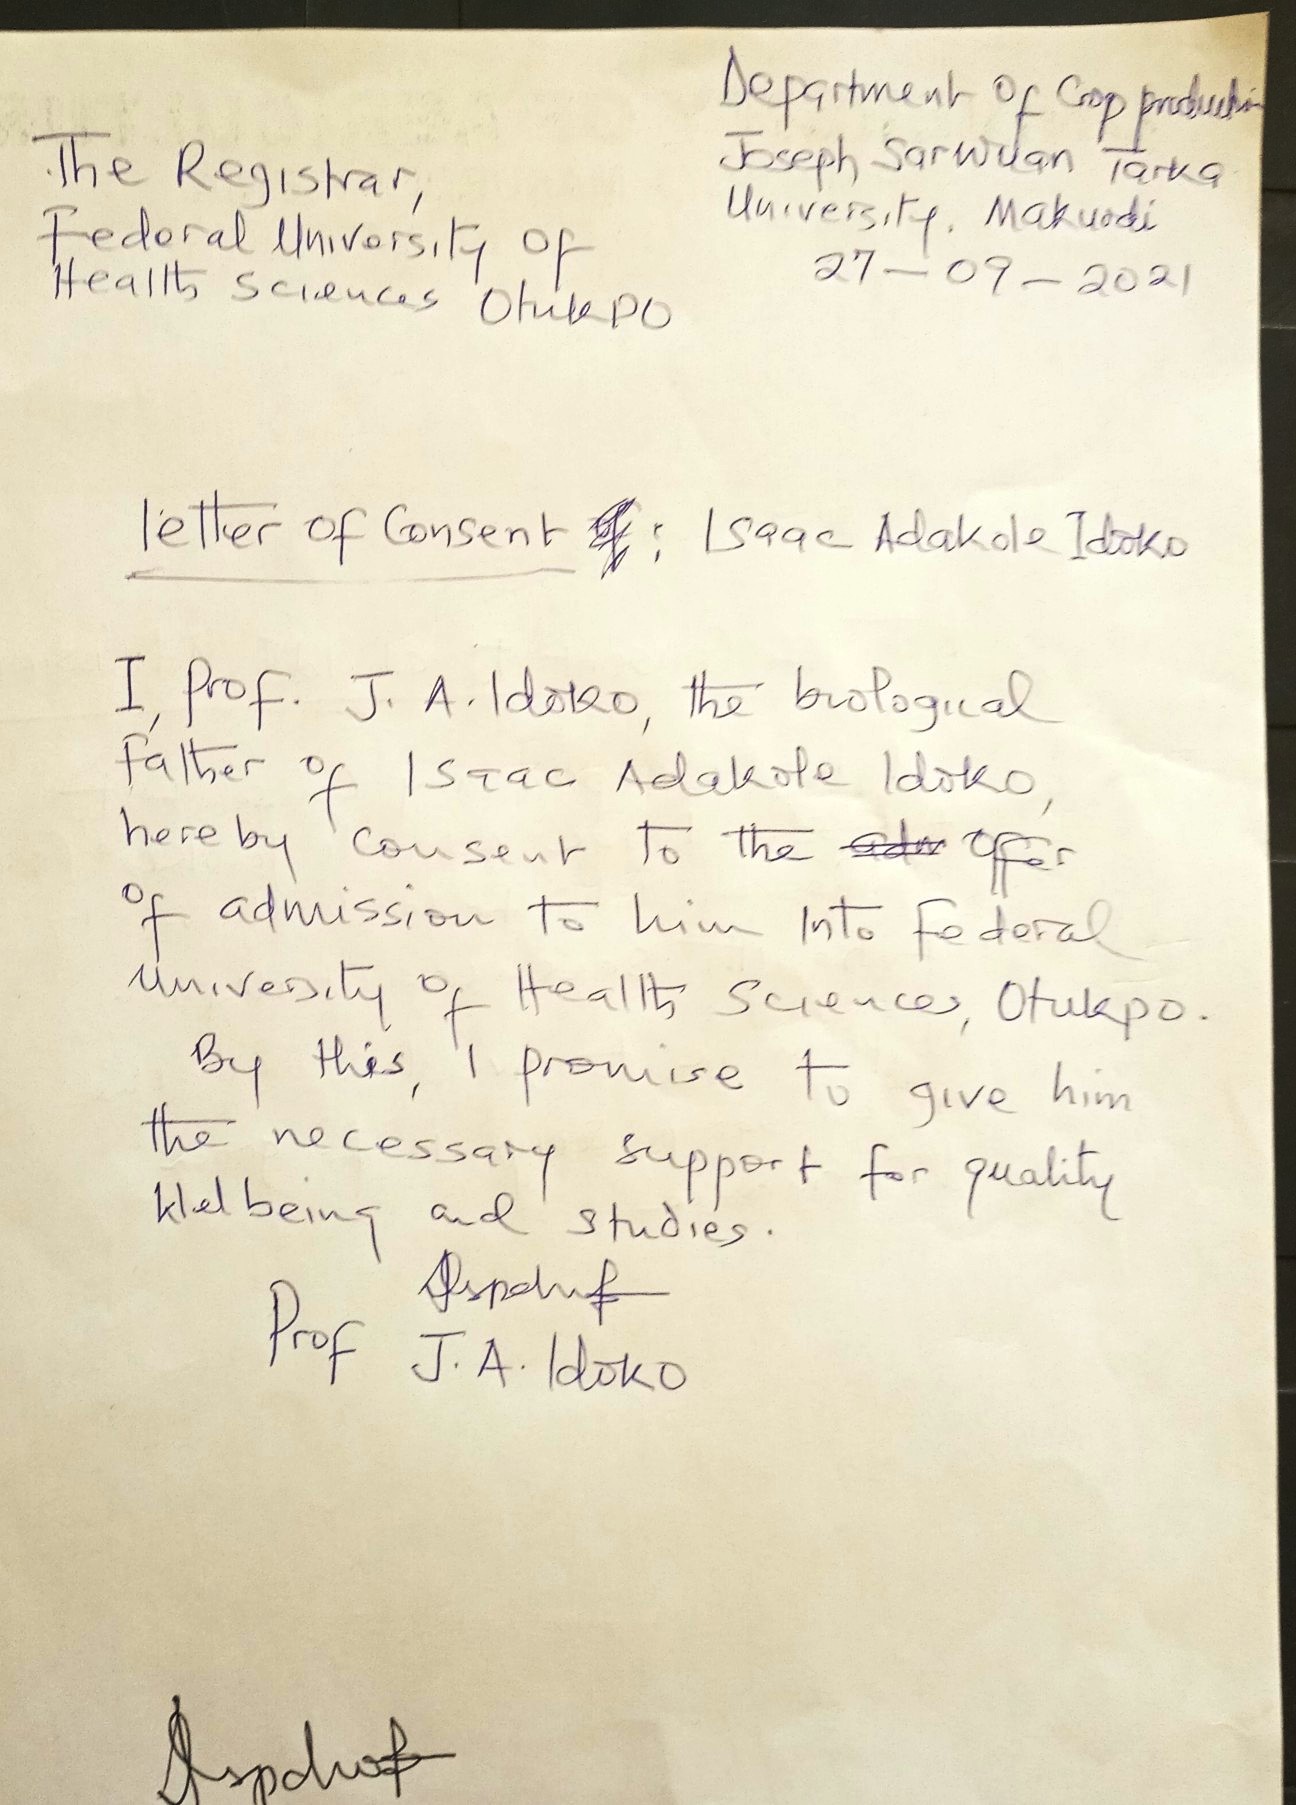 Department of Crop production
Joseph Sarwuan Tarka
University, Makurdi
27-09-2021
The Registrar,
Federal University of
Health Sciences Otukpo
Letter of Consent : Isaac Adakole Idoko
I, Prof. J. A. Idoko, the biological
Father of Isaac Adakole Idoko,
hereby consent to the offer
of admission to him Into Federal
University of Health Sciences, Otukpo.
By this, I promise to give him
the necessary support for quality
Welbeing and studies.
Prof J.A. Idoko